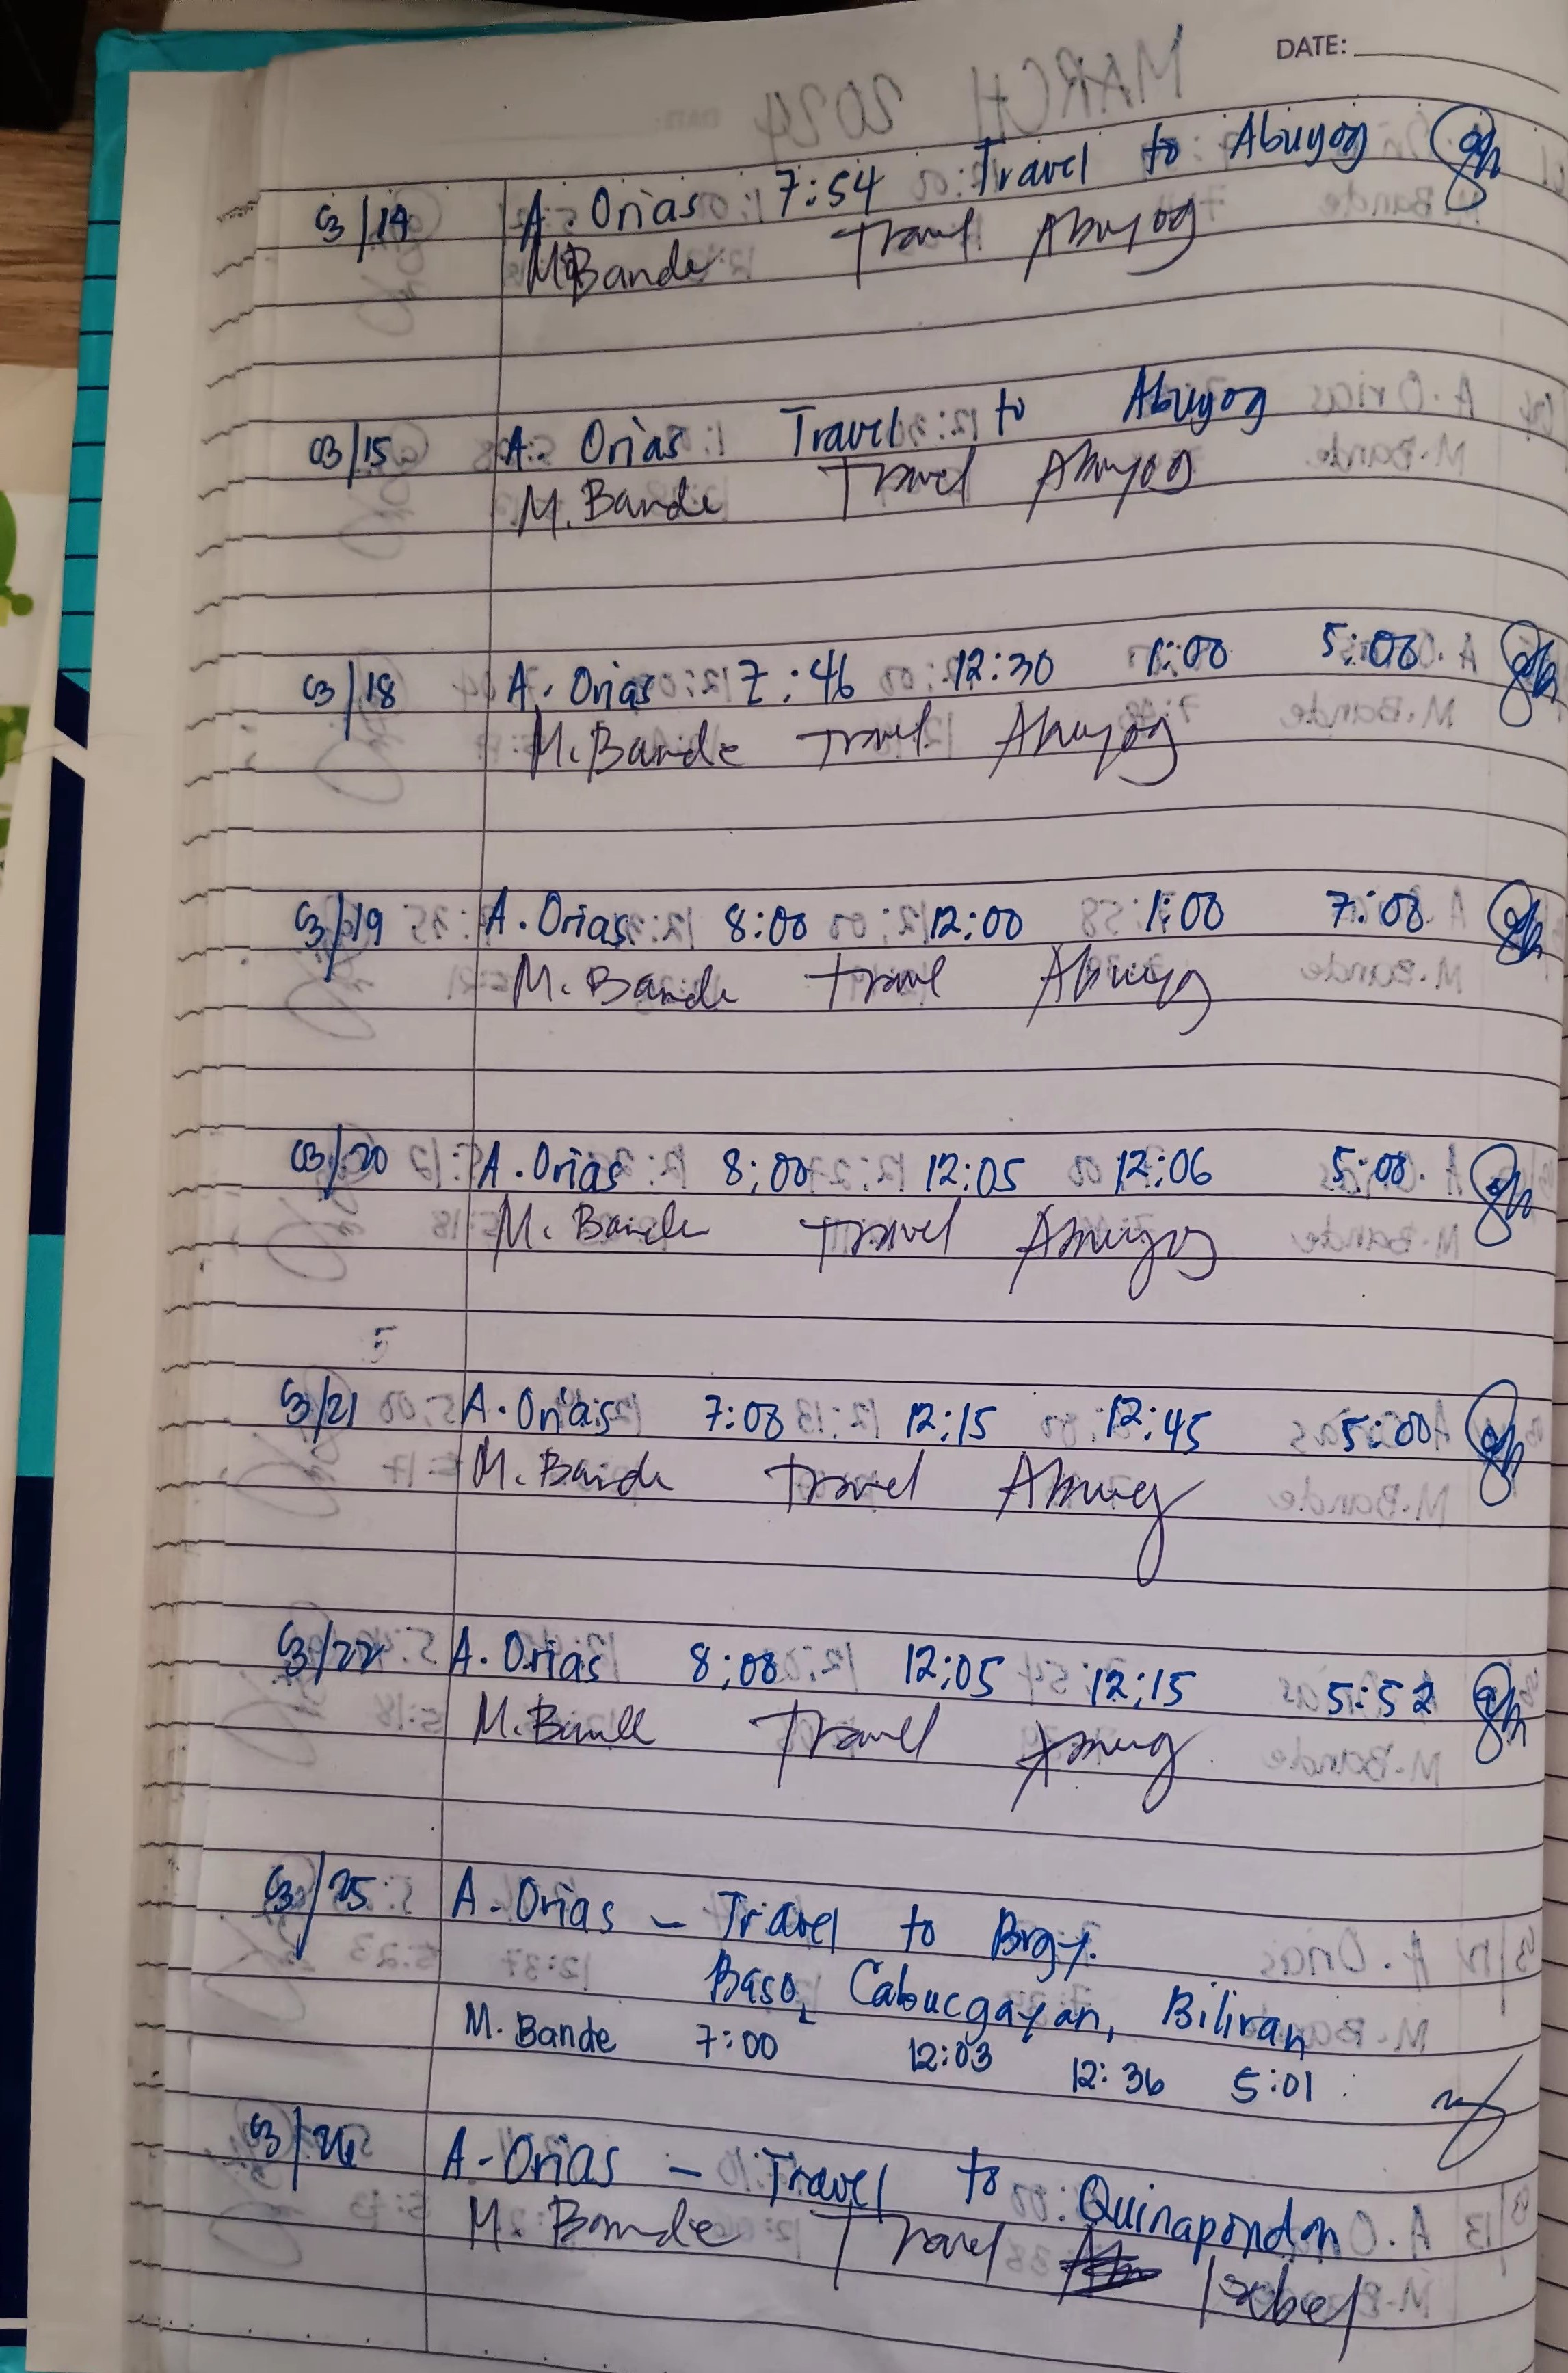 DATE:
03/14 A. Orias 7:54 Travel to Abuyog
M. Bande Travel Abuyog
03/15 A. Orias Travel to Abuyog
M. Bande Travel Abuyog
03/18 A. Orias 7:46 12:30 1:00 5:00
M. Bande Travel Abuyog
03/19 A. Orias 8:00 12:00 1:00 7:00
M. Bande Travel Abuyog
03/20 A. Orias 8:00 12:05 12:06 5:00
M. Bande Travel Abuyog
03/21 A. Orias 7:00 12:15 12:45 5:00
M. Bande Travel Abuyog
03/22 A. Orias 8:00 12:05 12:15 5:52
M. Bande Travel
03/25 A. Orias - Travel to Brgy.
Baso, Cabucgayan, Biliran
M. Bande 7:00 12:03 12:36 5:01
03/26 A. Orias - Travel to Quinapondan
M. Bande Travel